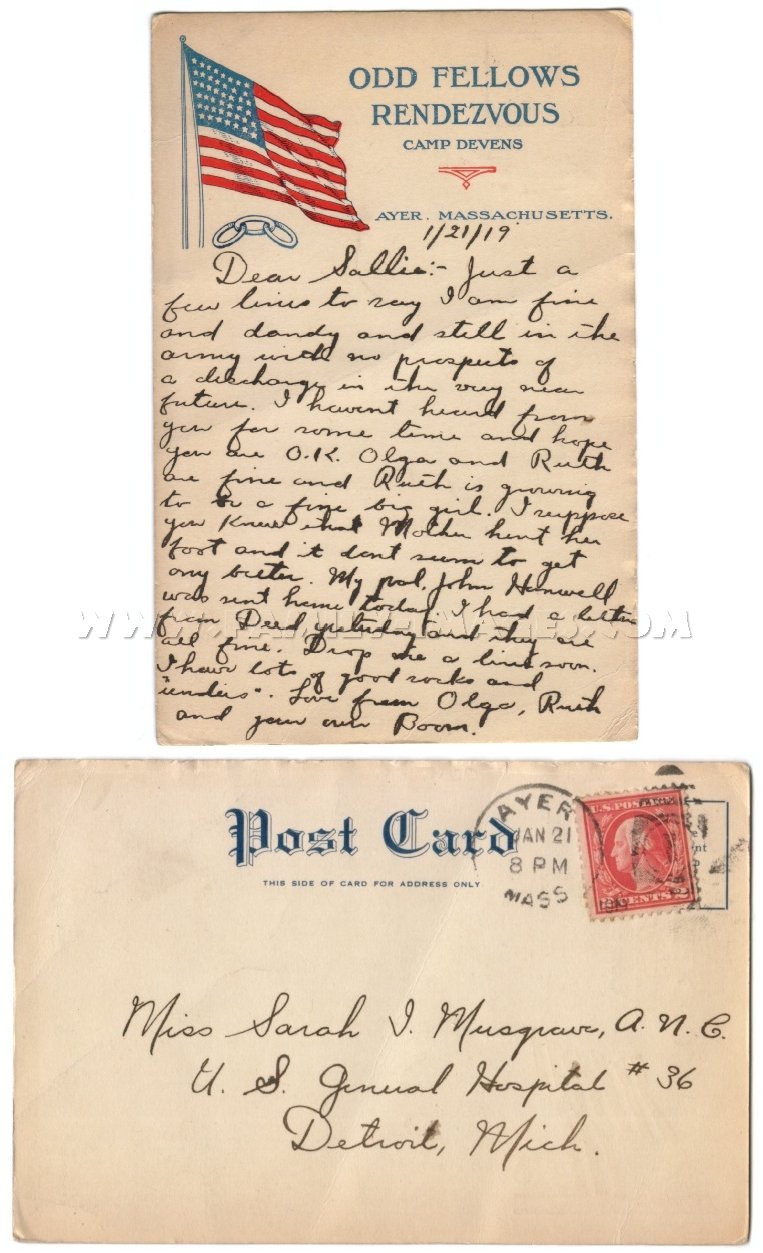 ODD FELLOWS
RENDEZVOUS
CAMP DEVENS
AYER, MASSACHUSETTS.
1/21/19
Dear Sallie:- Just a
few lines to say I am fine
and dandy and still in the
army with no prospects of
a discharge in the very near
future. I havent heard from
you for some time and hope
you are O.K. Olga and Ruth
are fine and Ruth is growing
to be a fine big girl. I suppose
you knew that Mother hurt her
foot and it dont seem to get
any better. My pal, John Hanwell
was sent home today. I had a letter
from Deed yesterday and they are
all fine. Drop me a line soon.
I have lots of good socks and
"undies". Love from Olga, Ruth
and your own Boom.
Post Card
THIS SIDE OF CARD FOR ADDRESS ONLY
AYER
JAN 21
8 PM
MASS
U.S. POSTAGE
2 CENTS 2
Miss Sarah I. Musgrave, A.N.C.
U. S. General Hospital # 36
Detroit, Mich.